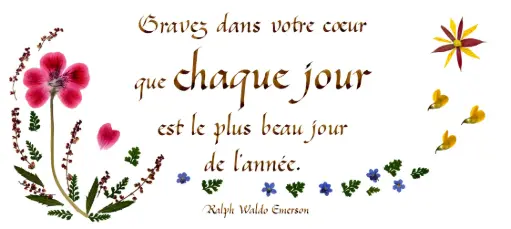 Gravez dans votre cœur
que chaque jour
est le plus beau jour
de l'année.
Ralph Waldo Emerson